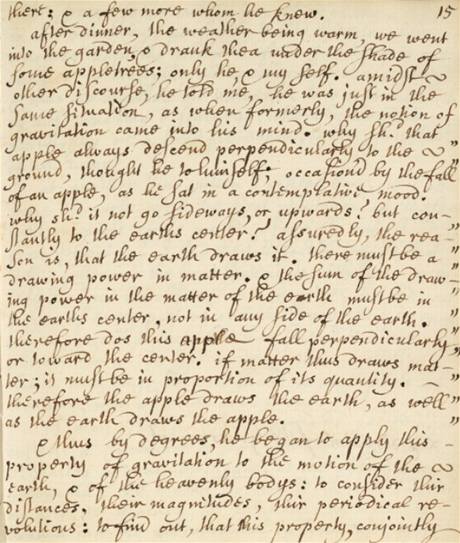 there: & a few more whom he knew. 15
after dinner, the weather being warm, we went
into the garden, & drank thea under the shade of
some appletrees; only he, & my self. amidst
other discourse, he told me, he was just in the
same situation, as when formerly, the notion of
gravitation came into his mind. why sh.d that
apple always descend perpendicularly to the "
ground, thought he to himself; occasion'd by the fall "
of an apple, as he sat in a contemplative mood. "
why sh.d it not go sideways, or upwards? but con- "
stantly to the earths center? assuredly, the rea- "
son is, that the earth draws it. there must be a "
drawing power in matter. & the sum of the draw- "
ing power in the matter of the earth must be in "
the earths center, not in any side of the earth. "
therefore dos this apple fall perpendicularly, "
or toward the center. if matter thus draws mat- "
ter; it must be in proportion of its quantity. "
therefore the apple draws the earth, as well "
as the earth draws the apple. "
& thus by degrees, he began to apply this
property of gravitation to the motion of the
earth, & of the heavenly bodys: to consider thir
distances, their magnitudes, thir periodical re-
volutions: to find out, that this property, conjointly